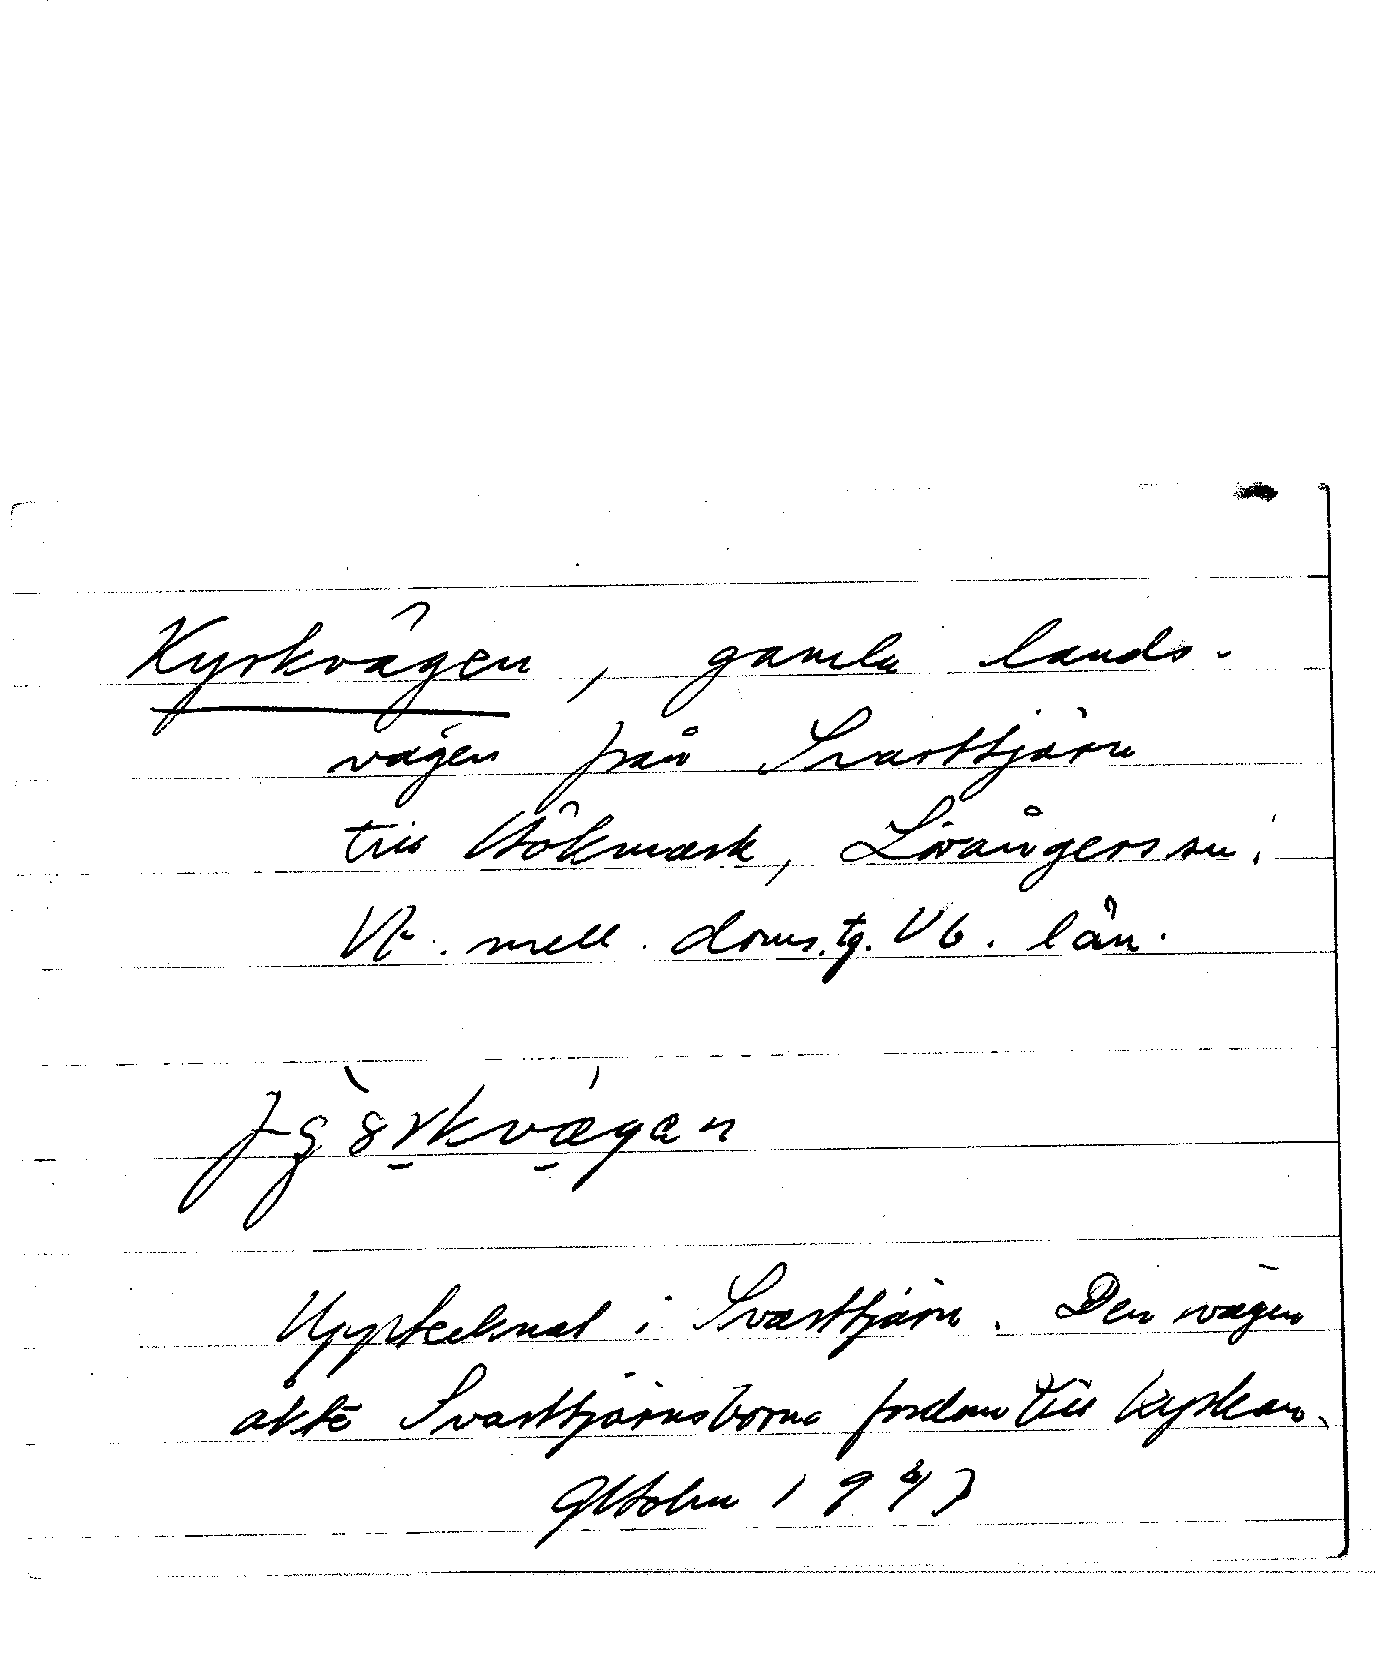 Kyrkvägen, gamla lands-
vägen från Svarttjärn
till Hökmark, Lövångers sn.
Vb. mell. doms.tg. Vb. län.
Upptecknat i Svarttjärn. Den vägen
åkte Svarttjärnsborna fordom till kyrkan.
1943